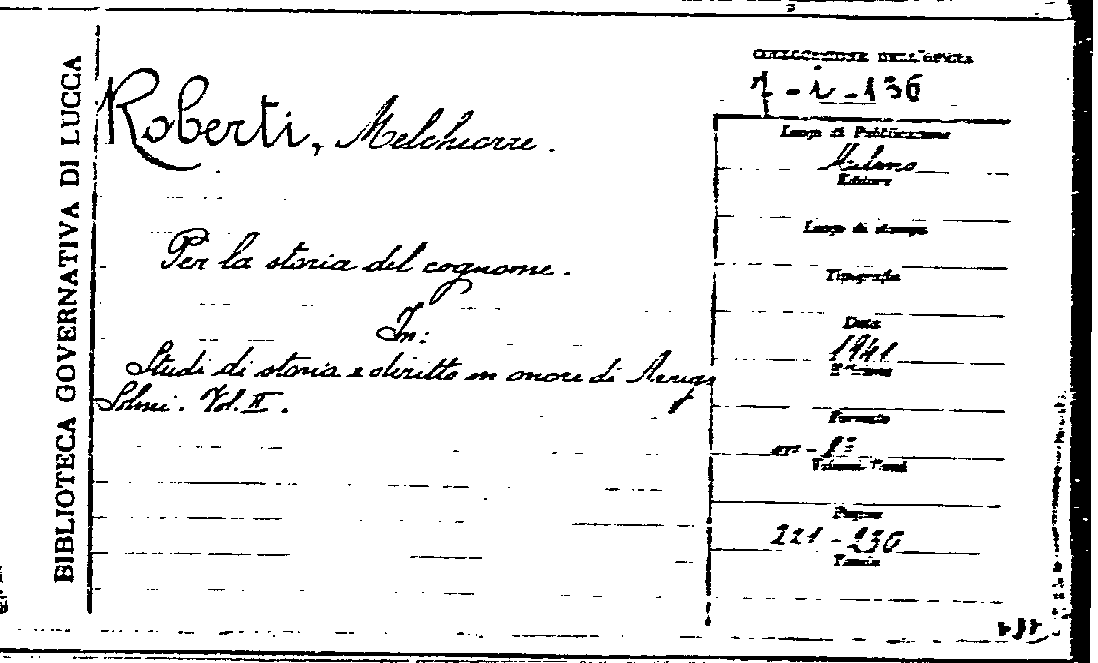 BIBLIOTECA GOVERNATIVA DI LUCCA
Roberti, Melchiorre.
Per la storia del cognome.
In:
Studi di storia e diritto in onore di Arrigo
Solmi. Vol. II.
COLLOCAZIONE DELL'OPERA
7-i-136
Luogo di Pubblicazione
Milano
Editore
Luogo di stampa
Tipografia
Data
1941
Formato
Volumi Tomi
Pagine
221-230
Tavole